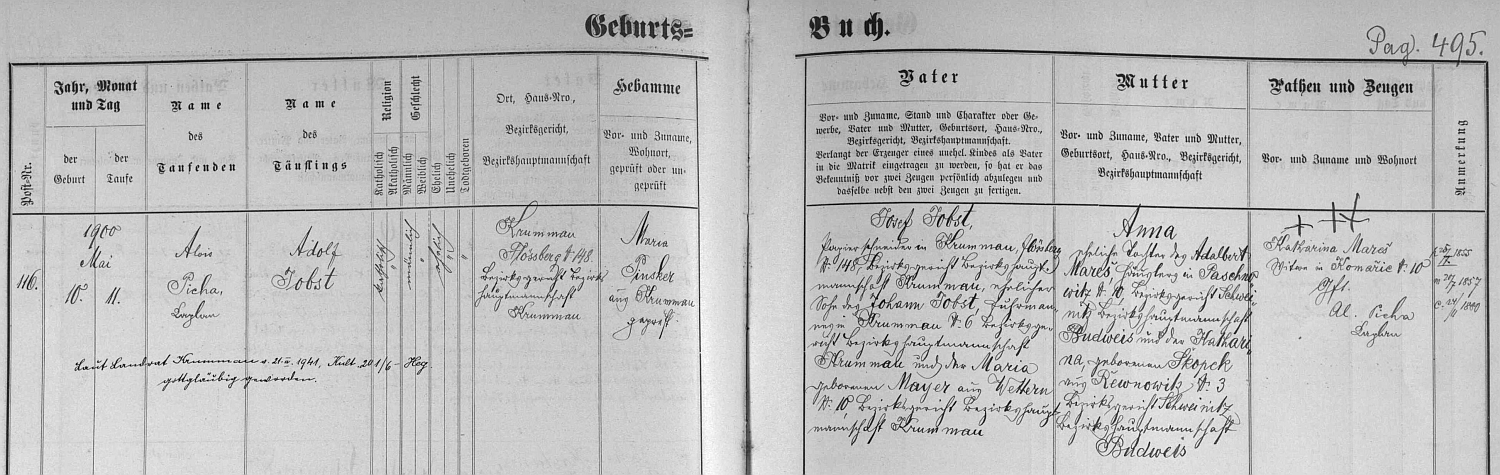 Geburts=
Buch.
Pag. 495.
Post-Nr.
Jahr, Monat
und Tag
der
Geburt
der
Taufe
Name
des
Taufenden
Name
des
Täuflings
Religion
Katholisch
Akatholisch
Geschlecht
Männlich
Weiblich
Ehelich
Unehelich
Todtgeboren
Ort, Haus-Nro,
Bezirksgericht,
Bezirkshauptmannschaft
Hebamme
Vor- und Zuname,
Wohnort,
geprüft oder un-
geprüft
Vater
Vor- und Zuname, Stand und Charakter oder Ge-
werbe, Vater und Mutter, Geburtsort, Haus-Nro.,
Bezirksgericht, Bezirkshauptmannschaft.
Verlangt der Erzeuger eines unehel. Kindes als Vater
in die Matrik eingetragen zu werden, so hat er das
Bekenntniß vor zwei Zeugen persönlich abzulegen und
dasselbe nebst den zwei Zeugen zu fertigen.
Mutter
Vor- und Zuname, Vater und Mutter,
Geburtsort, Haus-Nro., Bezirksgericht,
Bezirkshauptmannschaft
Pathen und Zeugen
Vor- und Zuname und Wohnort
Anmerkung
116.
1900
Mai
10. 11.
Alois
Picha,
Kaplan
Adolf
Jobst
katholisch
"
männlich
"
ehelich
"
"
Krummau
Flössberg № 148
Bezirksgericht Bezirks
hauptmannschaft
Krummau
Maria
Pinsker
aus Krummau
geprüft
Laut Landrat Krummau v. 1941, Kult. 201/6 – Heg.
gottgläubig geworden.
Josef Jobst,
Papierschneider in Krummau, Flössberg
№ 148, Bezirksgericht Bezirkshaupt-
mannschaft Krummau, ehelicher
Sohn des Johann Jobst, Fuhrman-
nes in Krummau № 6 Bezirksge-
richt Bezirkshauptmannschaft
Krummau und der Maria
geborenen Mayer aus Wettern
№ 10, Bezirksgericht Bezirkshaupt-
mannschaft Krummau
Anna
eheliche Tochter des Adalbert
Mareš Häuslers in
№ 10, Bezirksgericht Schwei-
nitz Bezirkshauptmannschaft
Budweis und der Kathari-
na, geborenen Skopek
aus Rewnowitz № 3
Bezirksgericht Schweinitz
Bezirkshauptmannschaft
Budweis
Katharina Mareš
Witwe in Komařic № 10
Al. Picha
Kaplan
1855
1857